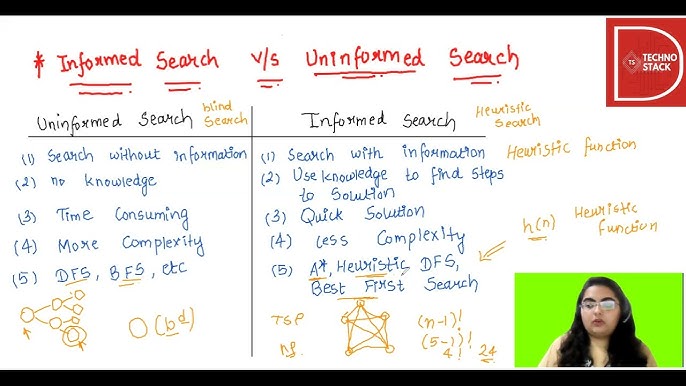 * Informed Search v/s Uninformed Search
TECHNO
STACK
TS
Uninformed Search blind Search
(1) Search without information
(2) no knowledge
(3) Time Consuming
(4) More Complexity
(5) DFS, BFS, etc
O(b^d)
Informed Search Heuristic Search
(1) Search with information Heuristic function
(2) Use knowledge to find steps
to Solution
(3) Quick Solution
(4) Less Complexity
(5) A*, Heuristic DFS,
Best First Search
h(n) Heuristic
function
TSP
(n-1)!
(5-1)!
4! 24